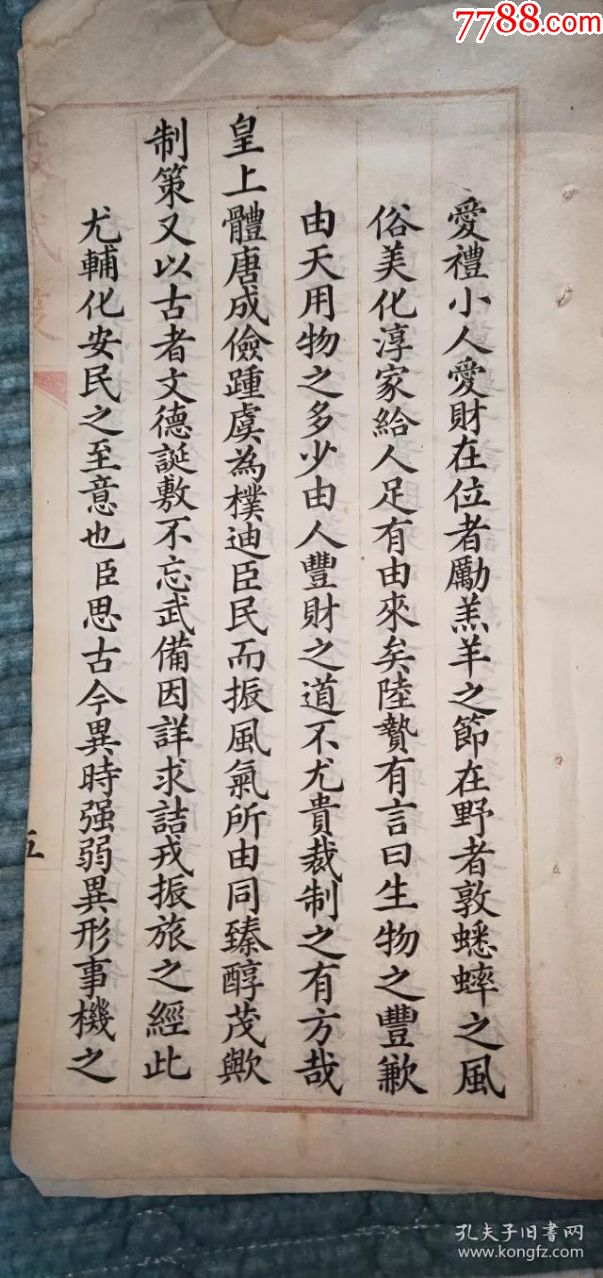 愛禮小人愛財在位者勵羔羊之節在野者敦蟋蟀之風
俗美化淳家給人足有由來矣陸贄有言曰生物之豐歉
由天用物之多少由人豐財之道不尤貴裁制之有方哉
皇上體唐成儉踵虞為樸迪臣民而振風氣所由同臻醇茂歟
制策又以古者文德誕敷不忘武備因詳求詰戎振旅之經此
尤輔化安民之至意也臣思古今異時强弱異形事機之
五
7788.com
孔夫子旧书网
www.kongfz.com